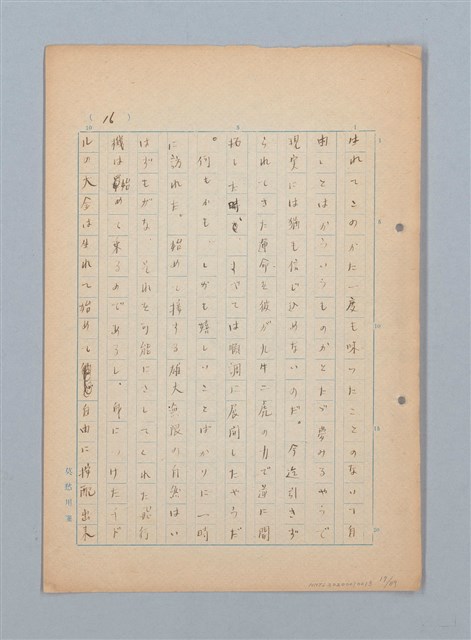 (16)
生れてこのかた一度も味つたことのない自
由とはかういふものかとたゞ夢みるやうで
現実には猶も信じ込めないのだ。今迄引きず
られてきた運命を彼が九牛二虎の力で逆に開
拓した時が、すべては順調に展開したやうだ
。何もかも、しかも嬉しいことばかりに一時
に訪れた。始めて接する雄大無限の自然はい
はずもがな、それを可能にさしてくれた飛行
機は始めて乗るのであるし、身につけたド
ルの大金は生れて始めて自由に撙配出来